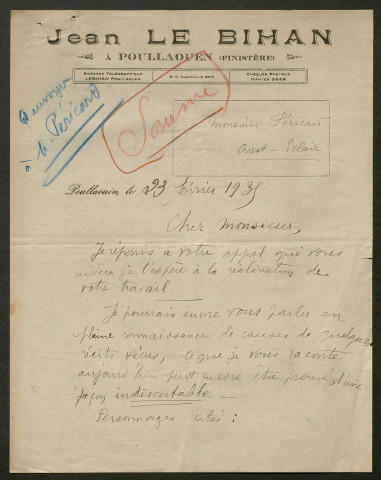 Jean LE BIHAN
A POULLAOUEN (FINISTÈRE)
ADRESSE TÉLÉGRAPHIQUE
LEBIHAN POULLAOUEN
R. C. CHATEAULIN
CHÈQUES POSTAUX
NANTES
à envoyer
à M. Péricard
Somme
Monsieur Péricard
Ouest-Eclair
Poullaouën le 23 février 1935
Cher Monsieur,
Je réponds à votre appel qui vous
aidera je l'espère à la réalisation de
votre travail
Je pourrais encore vous parler en
pleine connaissance de causes de quelques
récits vécus, - Ce que je vous raconte
aujourd'hui peut encore être prouvé d'une
façon indiscutable -
Personnages cités :